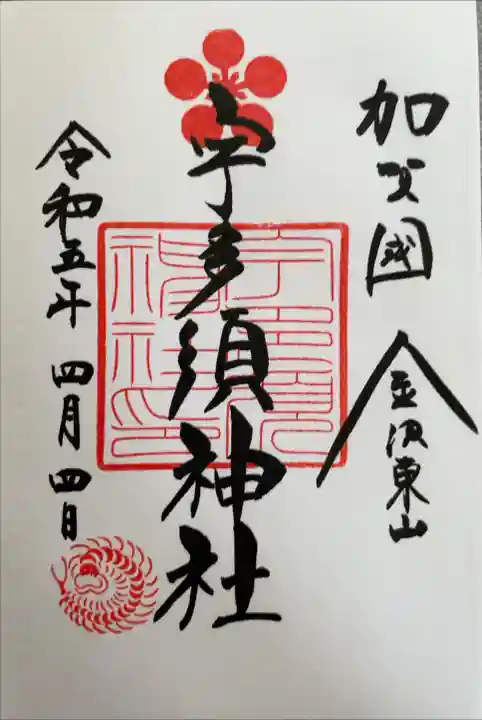 加賀國 金沢東山
宇多須神社
令和五年 四月四日